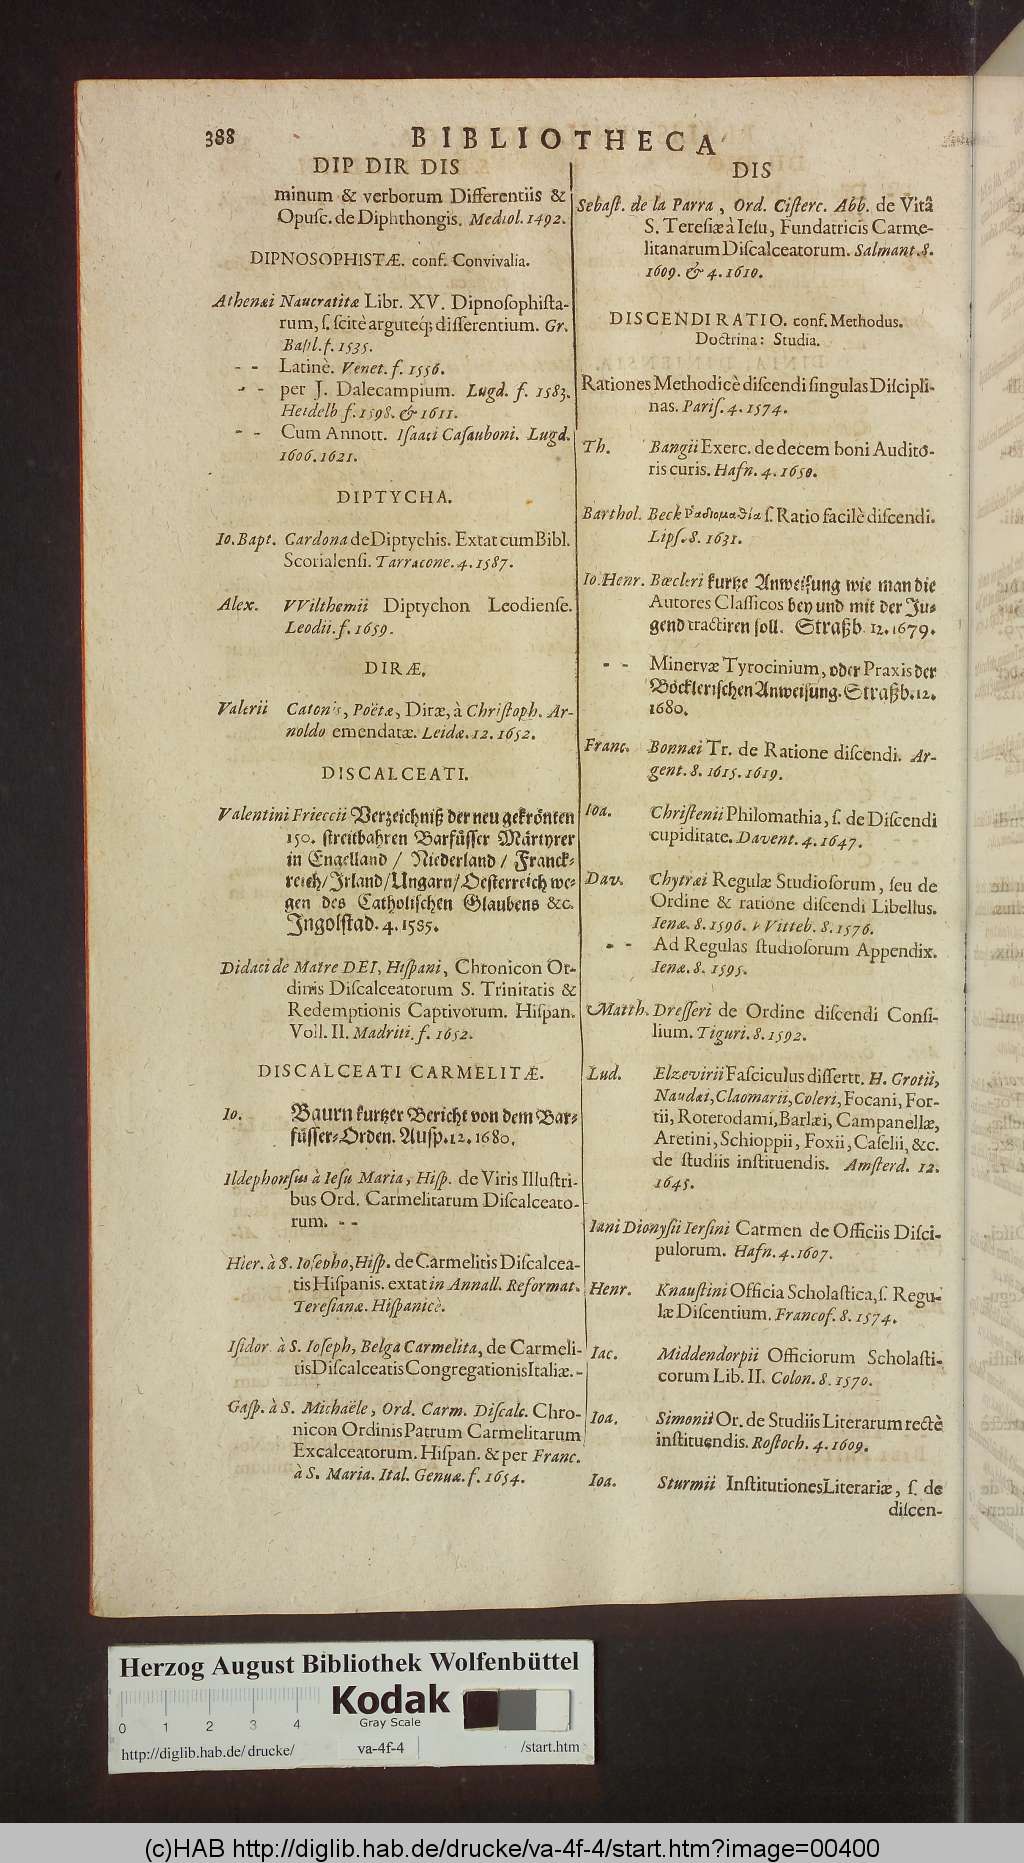 388
BIBLIOTHECA
DIP DIR DIS
minum & verborum Differentiis &
Opuſc. de Diphthongis. Mediol. 1492.
DIPNOSOPHISTÆ. conf. Convivalia.
Athenæi Naucratitæ Libr. XV. Dipnoſophiſta-
rum, ſ. ſcitè arguteq; differentium. Gr.
Baſil. f. 1535.
- - Latinè. Venet. f. 1556.
- - per J. Dalecampium. Lugd. f. 1583.
Heidelb f. 1598. & 1611.
- - Cum Annott. Iſaaci Caſauboni. Lugd.
1606. 1621.
DIPTYCHA.
Io. Bapt. Cardona de Diptychis. Extat cum Bibl.
Scorialenſi. Tarracone. 4. 1587.
Alex. VVilthemii Diptychon Leodienſe.
Leodii. f. 1659.
DIRÆ.
Valerii Catonis, Poëtæ, Diræ, à Chriſtoph. Ar-
noldo emendatæ. Leidæ. 12. 1652.
DISCALCEATI.
Valentini Frieccii Verzeichniß der neu gekrönten
150. ſtreitbahren Barfüſſer Märtyrer
in Engelland / Niederland / Franck-
reich/Irland/Ungarn/Oeſterreich we-
gen des Catholiſchen Glaubens &c.
Ingolſtad. 4. 1585.
Didaci de Matre DEI, Hiſpani, Chronicon Or-
dinis Diſcalceatorum S. Trinitatis &
Redemptionis Captivorum. Hiſpan.
Voll. II. Madriti. f. 1652.
DISCALCEATI CARMELITÆ.
Io. Baurn kurtzer Bericht von dem Bar-
füſſer-Orden. Auſp. 12. 1680.
Ildephonſus à Ieſu Maria, Hiſp. de Viris Illuſtri-
bus Ord. Carmelitarum Diſcalceato-
rum. - -
Hier. à S. Ioſepho, Hiſp. de Carmelitis Diſcalcea-
tis Hiſpanis. extat in Annall. Reformat.
Tereſianæ. Hiſpanicè.
Iſidor à S. Ioſeph, Belga Carmelita, de Carmeli-
tis Diſcalceatis Congregationis Italiæ. -
Gaſp. à S. Michaële, Ord. Carm. Diſcalc. Chro-
nicon Ordinis Patrum Carmelitarum
Excalceatorum. Hiſpan. & per Franc.
à S. Maria. Ital. Genuæ. f. 1654.
DIS
Sebaſt. de la Parra, Ord. Ciſterc. Abb. de Vitâ
S. Tereſiæ à Ieſu, Fundatricis Carme-
litanarum Diſcalceatorum. Salmant. 8.
1609. & 4. 1610.
DISCENDI RATIO. conf. Methodus.
Doctrina: Studia.
Rationes Methodicè diſcendi ſingulas Diſcipli-
nas. Pariſ. 4. 1574.
Th. Bangii Exerc. de decem boni Audito-
ris curis. Hafn. 4. 1650.
Barthol. Beck Ῥαδιομαθία ſ. Ratio facilè diſcendi.
Lipſ. 8. 1631.
Io. Henr. Bœcleri kurtze Anweiſung wie man die
Autores Claſſicos bey und mit der Ju-
gend tractiren ſoll. Straßb. 12. 1679.
- - Minervæ Tyrocinium, oder Praxis der
Böckleriſchen Anweiſung. Straßb. 12.
1680.
Franc. Bonnæi Tr. de Ratione diſcendi. Ar-
gent. 8. 1615. 1619.
Ioa. Chriſtenii Philomathia, ſ. de Diſcendi
cupiditate. Davent. 4. 1647.
Dav. Chytræi Regulæ Studioſorum, ſeu de
Ordine & ratione diſcendi Libellus.
Ienæ. 8. 1596. & Vitteb. 8. 1576.
- - Ad Regulas ſtudioſorum Appendix.
Ienæ. 8. 1595.
Matth. Dreſſeri de Ordine diſcendi Conſi-
lium. Tiguri. 8. 1592.
Lud. Elzevirii Faſciculus diſſertt. H. Grotii,
Naudæi, Claomarii, Coleri, Focani, For-
tii, Roterodami, Barlæi, Campanellæ,
Aretini, Schioppii, Foxii, Caſelii, &c.
de ſtudiis inſtituendis. Amſterd. 12.
1645.
Iani Dionyſii Ierſini Carmen de Officiis Diſci-
pulorum. Hafn. 4. 1607.
Henr. Knauſtini Officia Scholaſtica, ſ. Regu-
læ Diſcentium. Francof. 8. 1574.
Iac. Middendorpii Officiorum Scholaſti-
corum Lib. II. Colon. 8. 1570.
Ioa. Simonii Or. de Studiis Literarum rectè
inſtituendis. Roſtoch. 4. 1609.
Ioa. Sturmii Inſtitutiones Literariæ, ſ. de
diſcen-
Herzog August Bibliothek Wolfenbüttel
Kodak
Gray Scale
0 1 2 3 4
http://diglib.hab.de/drucke/ va-4f-4 /start.htm
(c)HAB http://diglib.hab.de/drucke/va-4f-4/start.htm?image=00400